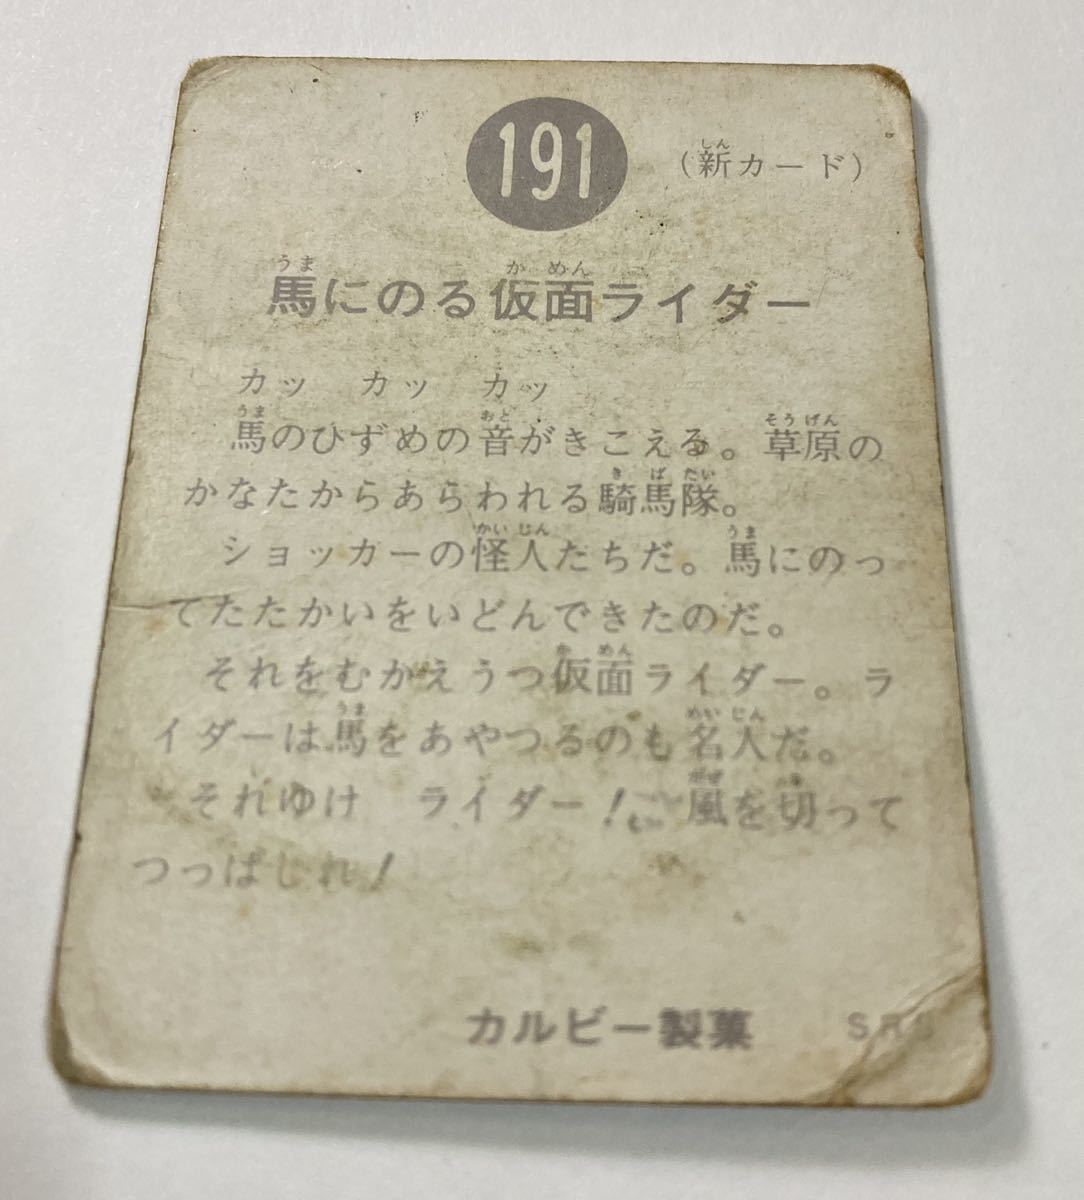 191
(新カード)
馬にのる仮面ライダー
カッ カッ カッ
馬のひずめの音がきこえる。草原の
かなたからあらわれる騎馬隊。
ショッカーの怪人たちだ。馬にのっ
てたたかいをいどんできたのだ。
それをむかえうつ仮面ライダー。ラ
イダーは馬をあやつるのも名人だ。
それゆけ ライダー! 風を切って
つっぱしれ!
カルビー製菓